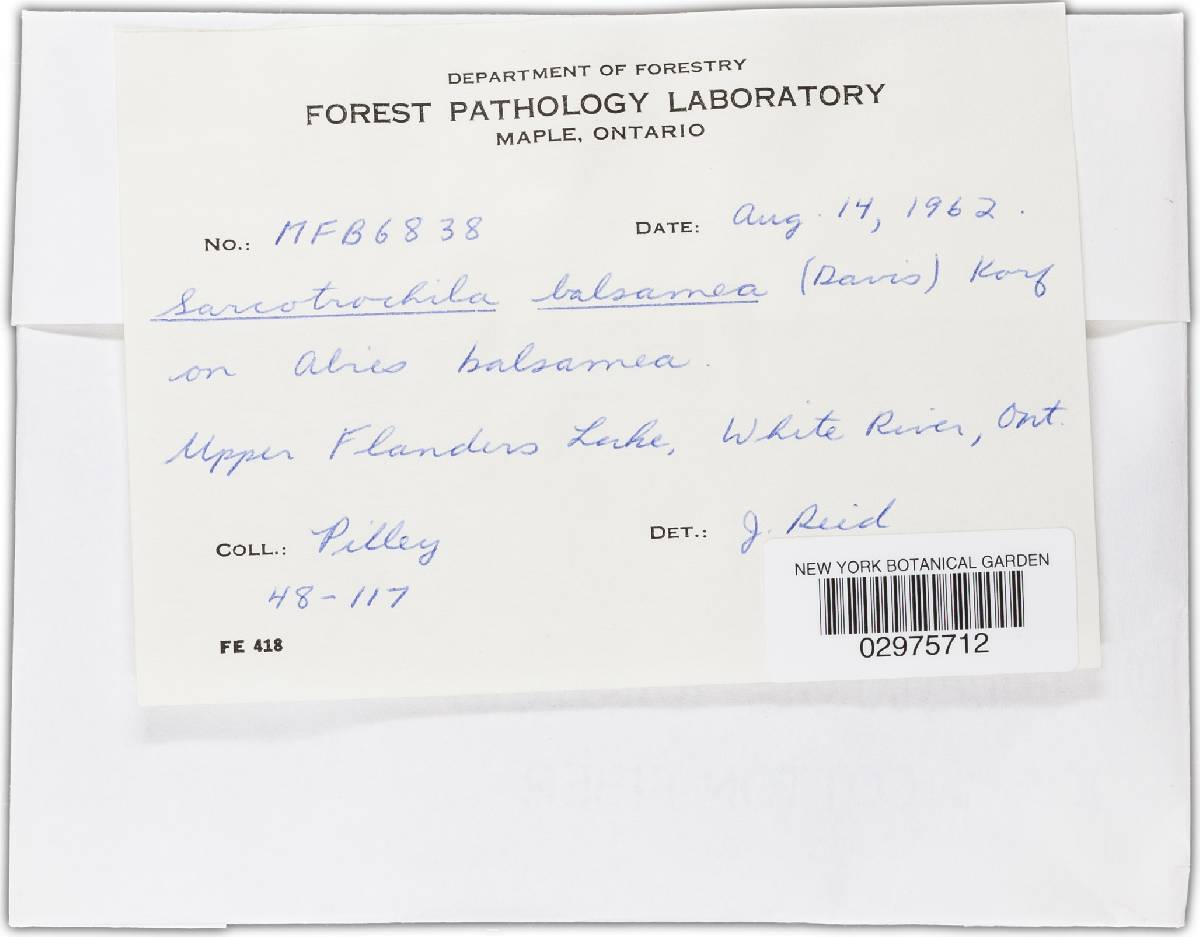 DEPARTMENT OF FORESTRY
FOREST PATHOLOGY LABORATORY
MAPLE, ONTARIO
No.: MFB6838 DATE: Aug. 14, 1962.
Sarcotrochila balsamea (Davis) Korf
on Abies balsamea.
Upper Flanders Lake, White River, Ont.
COLL.: Pilley DET.: J. Reid
48-117
FE 418
NEW YORK BOTANICAL GARDEN
02975712